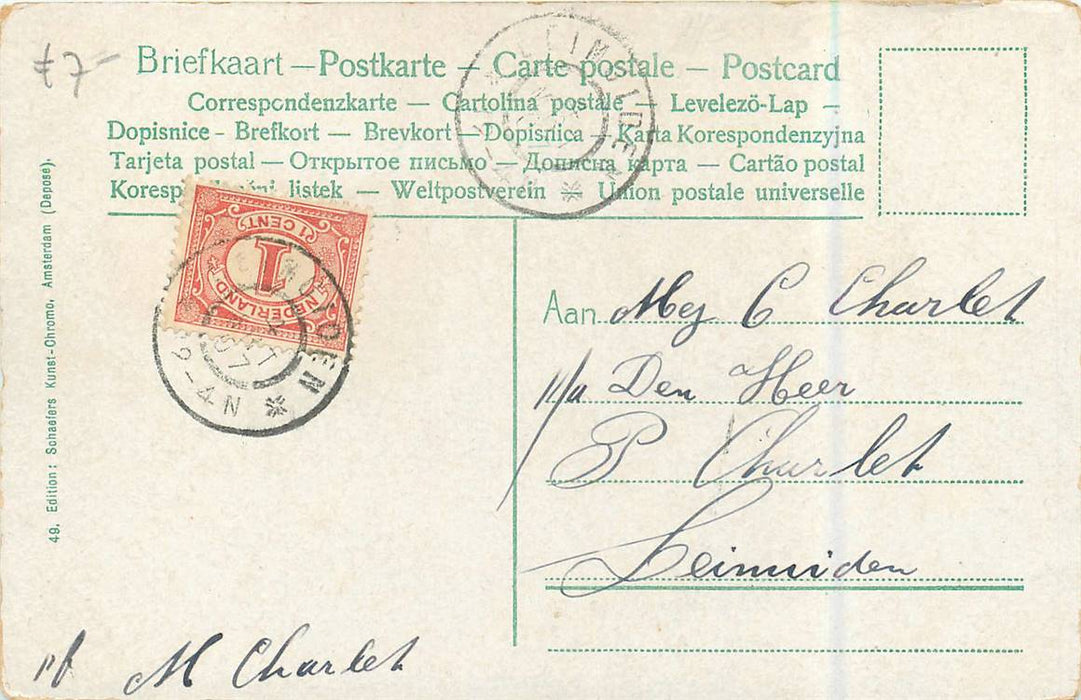 £7-
Briefkaart – Postkarte – Carte postale – Postcard
Correspondenzkarte – Cartolina postale – Levelező-Lap –
Dopisnice - Brefkort – Brevkort – Dopisnica – Karta Korespondenzyjna
Tarjeta postal – Открытое письмо – Дописна карта – Cartão postal
listek – Weltpostverein – Union postale universelle
1 CENT
1
NEDERLAND
Aan Mej C Charlet
p/a Den Heer
P Charlet
Leimuiden
M Charlet
49. Edition: Schaefers Kunst-Chromo, Amsterdam (Deposé).